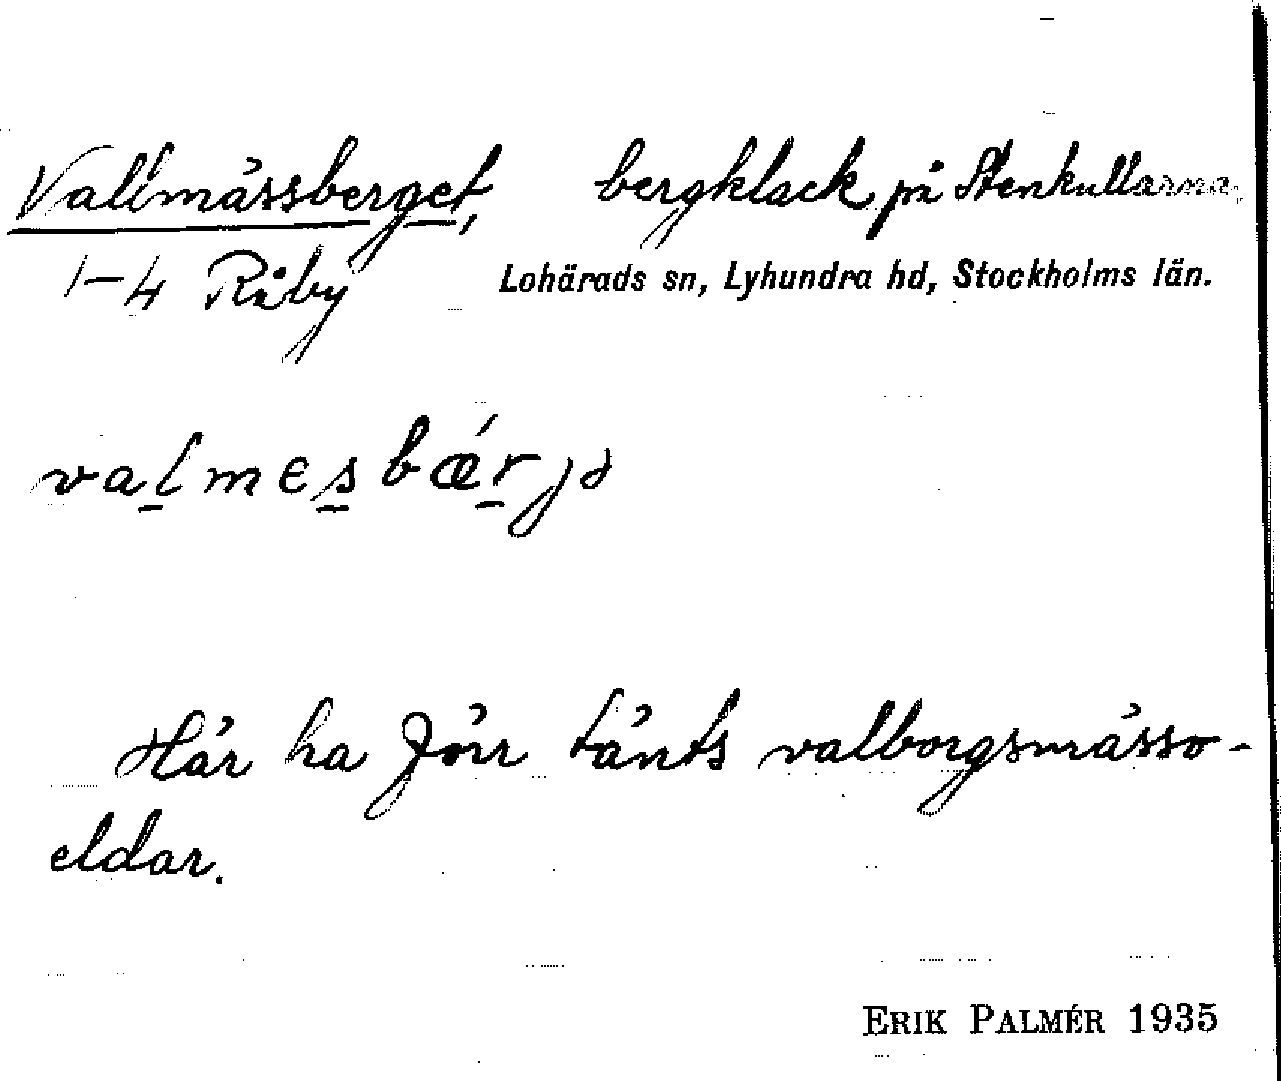 Vallmässberget, bergklack på Stenkullarna,
1-4 Råby Lohärads sn, Lyhundra hd, Stockholms län.
valmesbǽrjə
Här ha förr tänts valborgsmässo-
eldar.
ERIK PALMÉR 1935